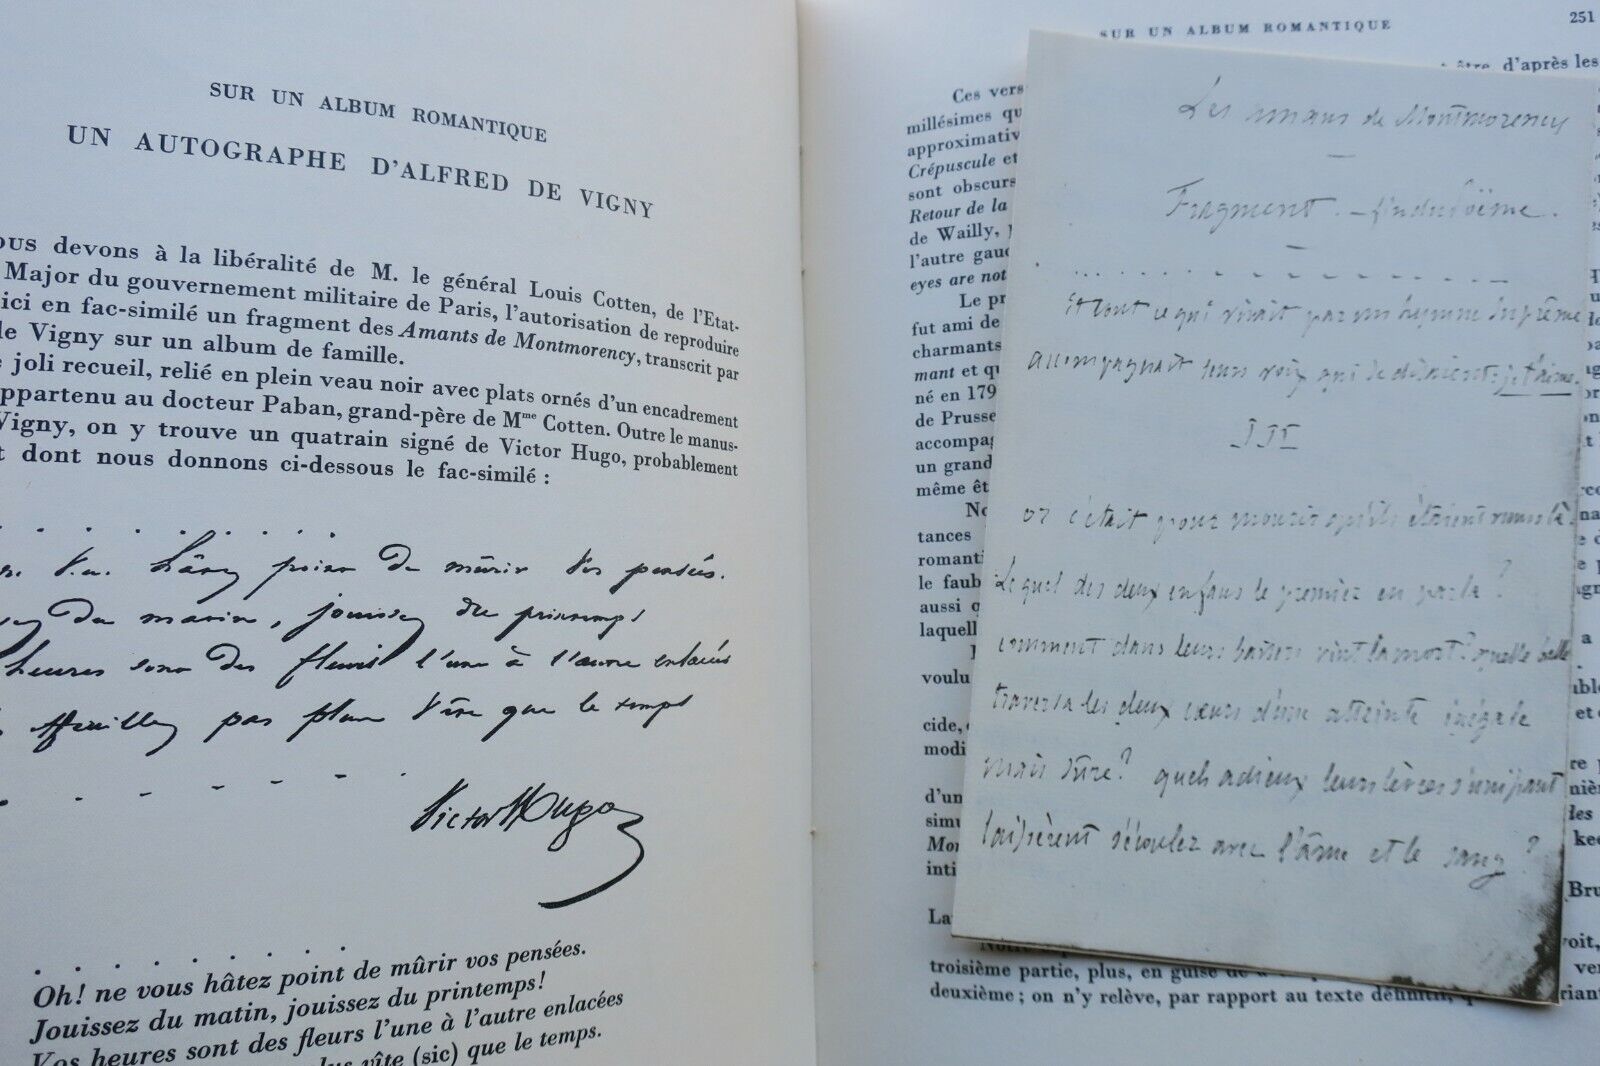 SUR UN ALBUM ROMANTIQUE
UN AUTOGRAPHE D'ALFRED DE VIGNY
OUS devons à la libéralité de M. le général Louis Cotten, de l'Etat-
Major du gouvernement militaire de Paris, l'autorisation de reproduire
ici en fac-similé un fragment des Amants de Montmorency, transcrit par
de Vigny sur un album de famille.
joli recueil, relié en plein veau noir avec plats ornés d'un encadrement
appartenu au docteur Paban, grand-père de Mme Cotten. Outre le manus-
Vigny, on y trouve un quatrain signé de Victor Hugo, probablement
t dont nous donnons ci-dessous le fac-similé :
hâtez point de mûrir vos pensées.
du matin, jouissez du printemps!
heures sont des fleurs l'une à l'autre enlacées
effeuillez pas plus vîte que le temps
Victor Hugo
Oh! ne vous hâtez point de mûrir vos pensées.
Jouissez du matin, jouissez du printemps!
Vos heures sont des fleurs l'une à l'autre enlacées
plus vîte (sic) que le temps.
SUR UN ALBUM ROMANTIQUE
251
être, d'après les
Ces vers
millésimes qu
approximativ
Crépuscule et
sont obscurs
Retour de la
de Wailly,
l'autre gauc
eyes are not
Le pr
fut ami de
charmants
mant et qu
né en 179
de Prusse
accompag
un grand
même êt
No
tances
romanti
le faub
aussi
laquell
voulu
cide,
modi
d'un
simu
Mon
inti
La
Notre
troisième partie, plus, en guise de
deuxième ; on n'y relève, par rapport au texte définitif,
Les amans de Montmorency
Fragment. – fin du Poëme.
Et tout ce qui vivait par un hymne suprême
accompagnait leurs voix qui se disaient: je t'aime.
III
or c'était pour mourir qu'ils étaient venus là.
Lequel des deux enfans le premier en parla?
comment dans leurs baisers vint la mort? quelle balle
traversa les deux cœurs d'une atteinte inégale
mais sûre? quels adieux leurs lèvres s'unissant
laissèrent s'écouler avec l'âme et le sang?